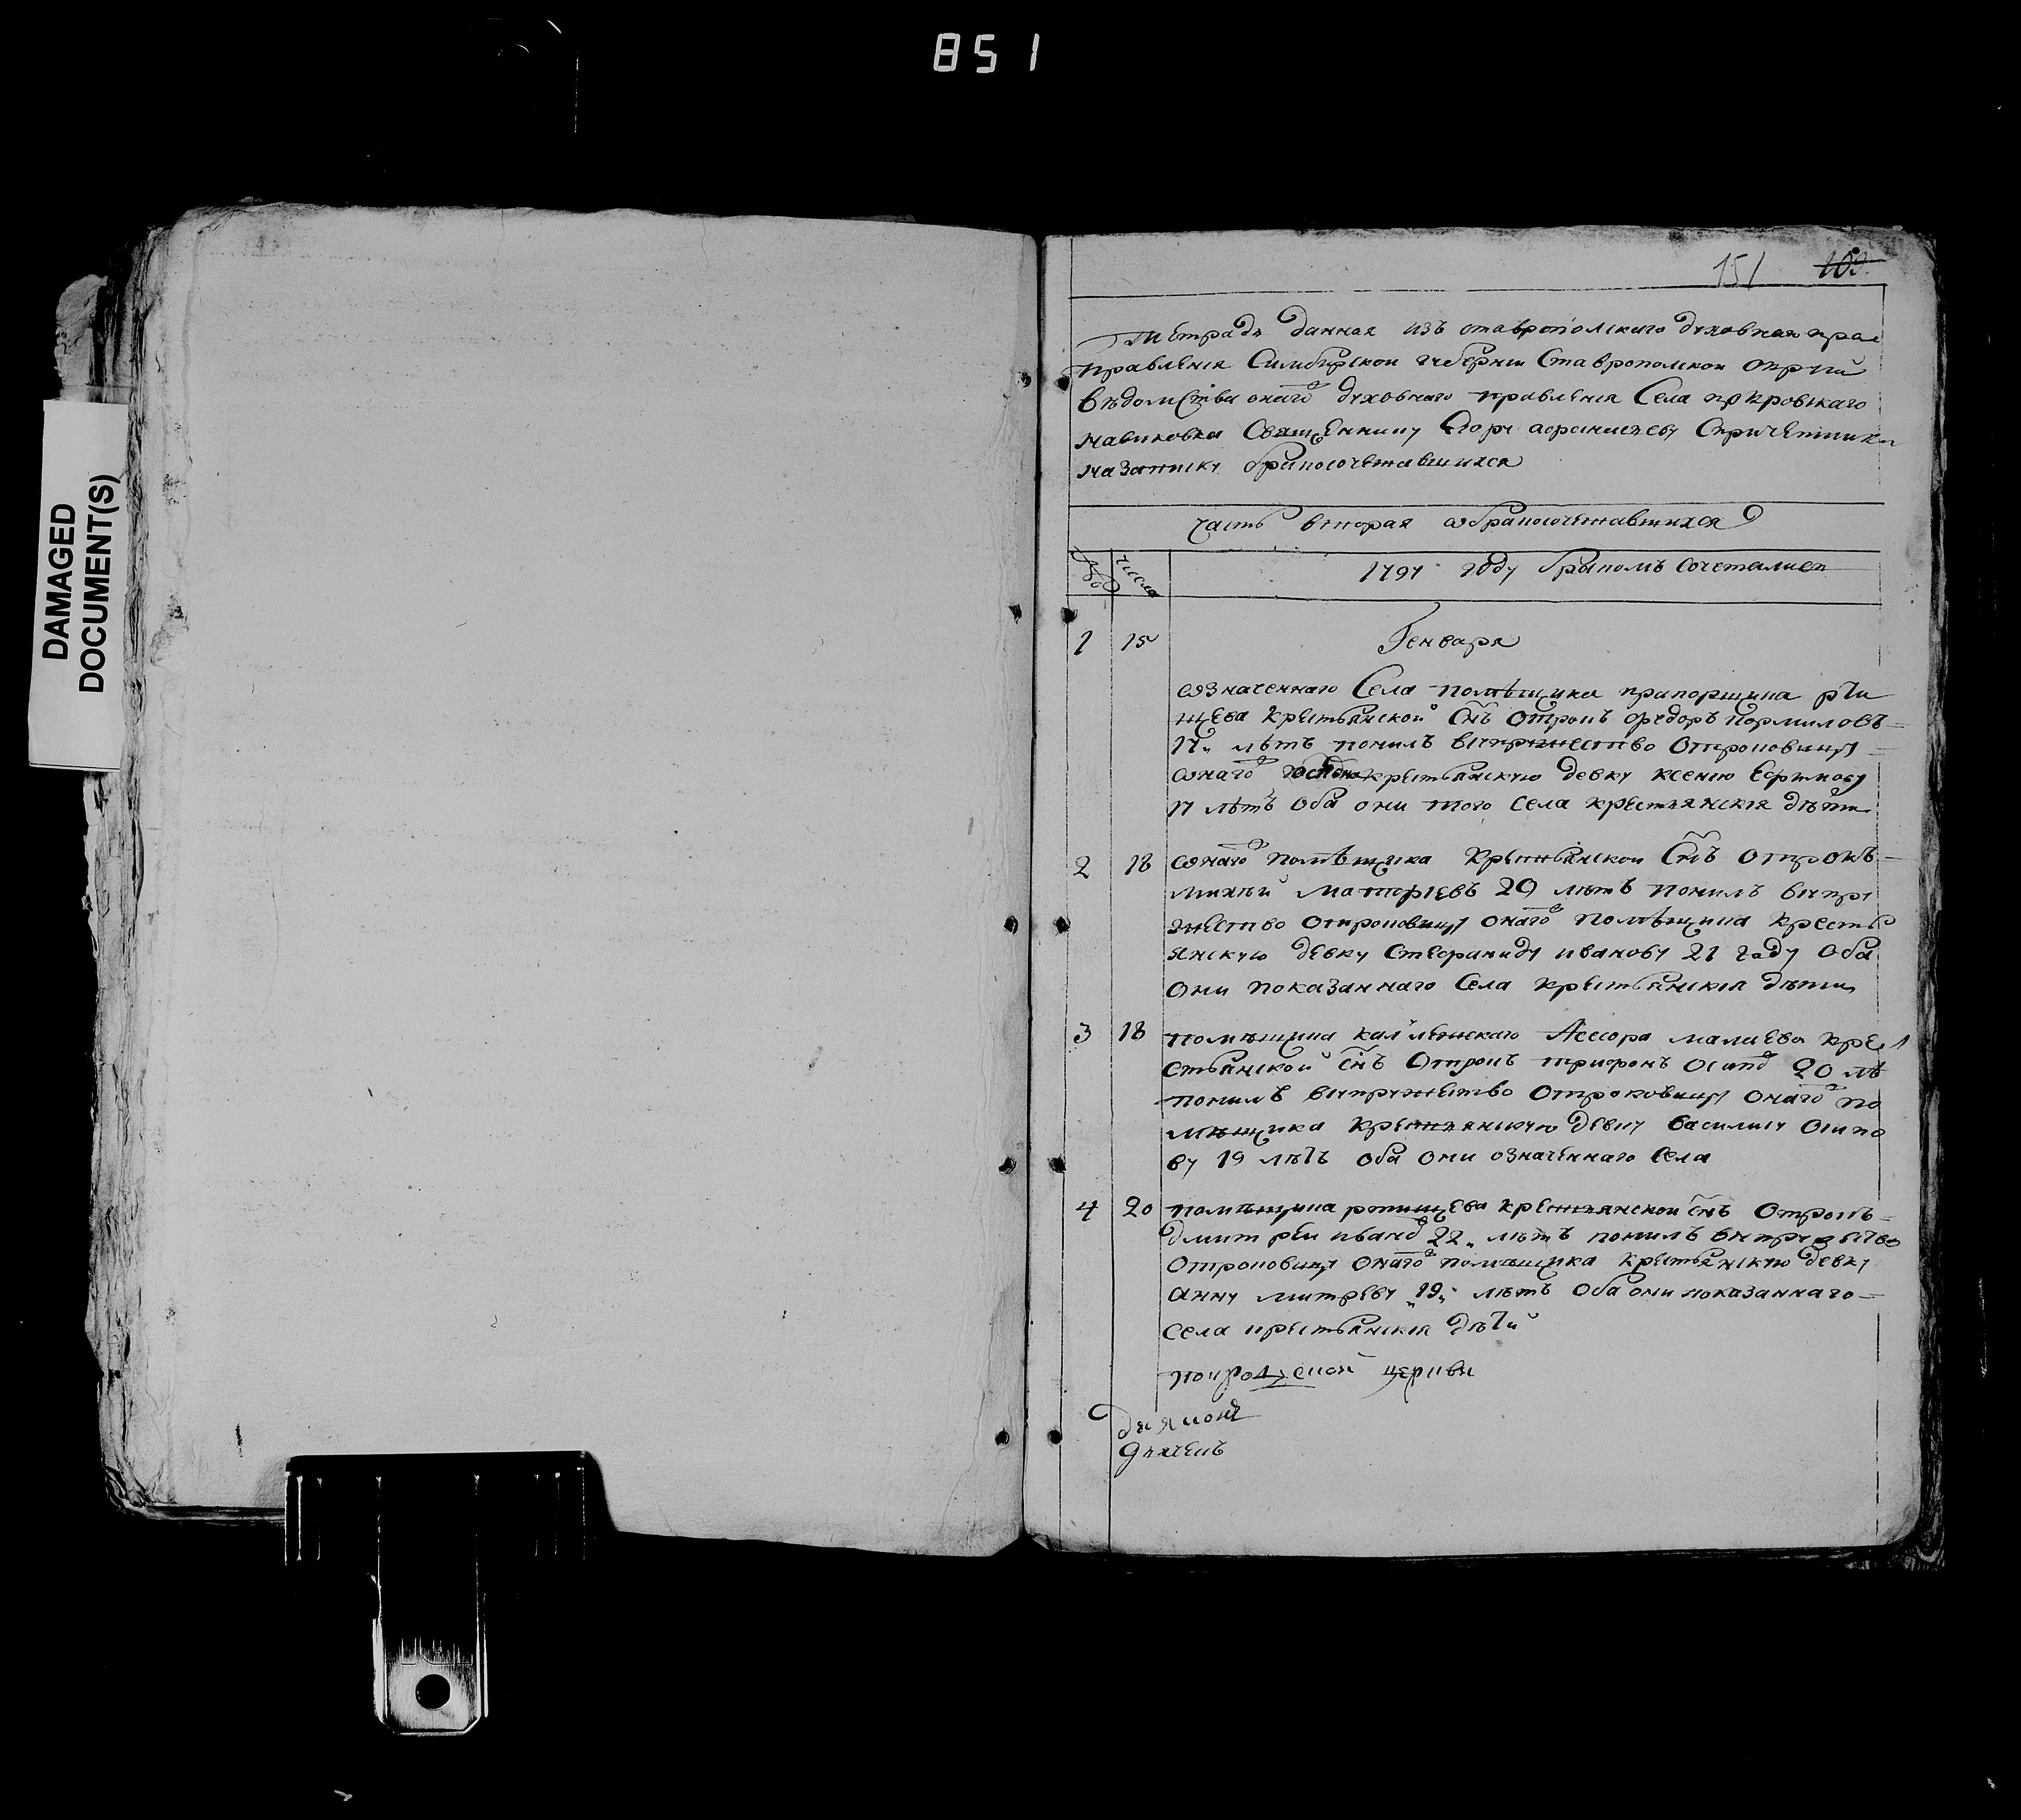 851
DAMAGED
DOCUMENT(S)
151 109.
Тетрадь данная изъ ставропольскаго духовная пра
правленія Симбирской губерніи Ставропольской округи
вѣдомства онаго духовнаго правленія Села покровскаго
навиковка Священнику Егору афанасьеву Спричетники
на записку бракосочетавшихся
часть вторая о бракосочетавшихся
числа
1797 году бракомъ сочетались
1 15 Генваря
означеннаго Села помѣщика прапорщика рти
щева крестьянской снъ отрокъ федоръ кормиловъ
17 лѣтъ понялъ въ супружество отроковицу
онаго крестьянскую девку ксению
17 лѣтъ оба они того села крестьянскія дѣти
2 18 онаго помѣщика крестьянской снъ отрокъ
михѣй матфіевъ 20 лѣтъ понялъ всупру
жество отроковицу онаго помѣщика кресть
янскую девку стефаниду иванову 21 году оба
они показаннаго Села крестьянскія дѣти
3 18 помѣщика Ассора кре
стьянской снъ отрокъ трифонъ осипо 20 лѣ
понялъ всупружество отроковицу онаго по
мѣщика крестьянскую девку василису осипо
ву 19 лѣтъ оба они означеннаго Села
4 20 помѣщика ртищева крестьянской снъ отрокъ
дмитреи ивано 22 лѣтъ понялъ
отроковицу онаго помѣщика крестьянскую девку
анну митреву 19 лѣтъ оба они показаннаго
села крестьянскія дѣти
покровской церкви
дьяконъ
дьячекъ